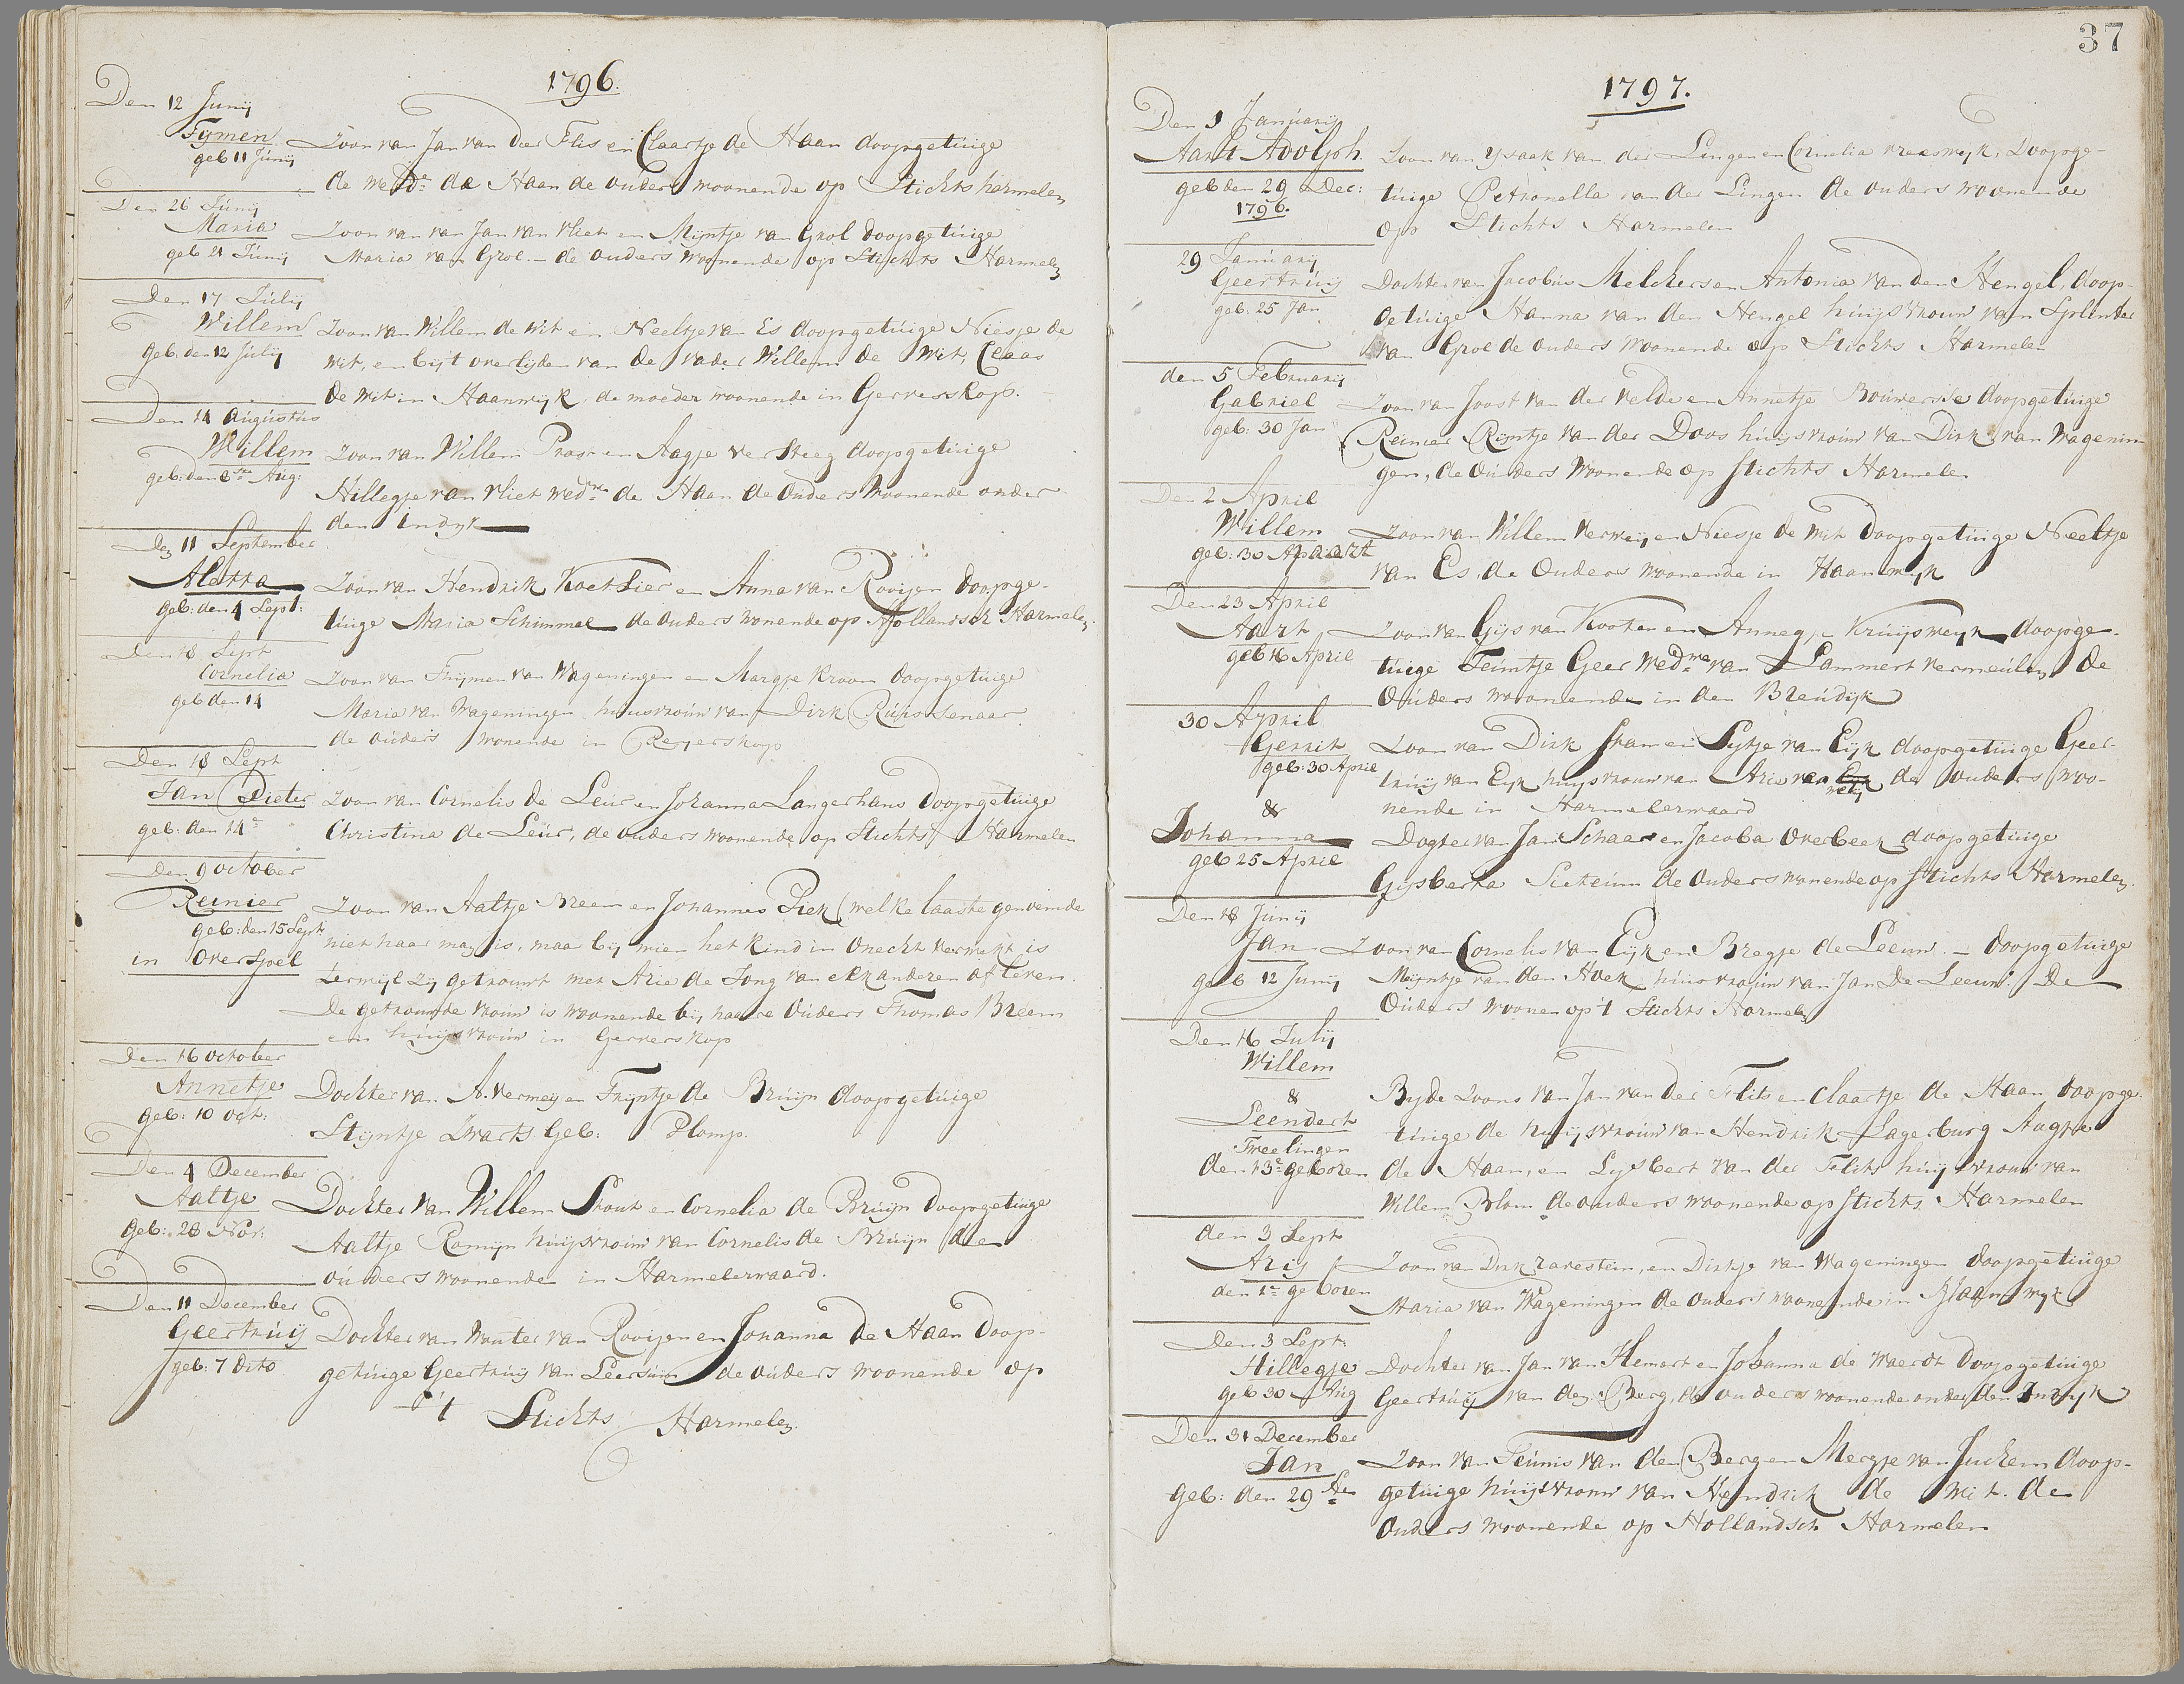 1796.
Den 12 Junij
Tijmen Zoon van Jan van der Flis en Claartje de Haan doopgetuige
geb 11 Junij
de wede de Haan de ouders woonende op Stichts hermelen
Den 26 Junij
Maria Zoon van van Jan van Vliet en Mijntje van Grol doopgetuige
geb 21 Junij Maria van Groe. - de ouders woonende op Stichts Harmelen
Den 17 Julij
Willem Zoon van Willem de Wit en Neeltje van Es doopgetuige Niesje de
geb. den 12 Julij wit, en bijt overlijden van de vader Willem de Wit, Claas
de Wit in Haanwijk de moeder woonende in Gerverskop.
Den 14 Augustus
Willem Zoon van Willem en Aagje ver Steeg doopgetuige
geb: den Aug:
Hillegje van Vliet wedwe de Haan de Ouders woonende onder
den Indyk
Den 11 September
Aletta Zoon van Hendrik Koetsier en Anna van Rooijen doopge-
geb: den 4 Sept: tuige Maria Schimmel de ouders wonende op Hollandsch Harmelen
Den 18 Sept
Cornelia Zoon van Thijmen van Wageningen en Margje Kroon doopgetuige
geb den 14 Maria van Wageningen huusvrouw van Dirk
de ouders wonende in Reyerskop
Den 18 Sept
Jan Pieter Zoon van Cornelis de Leur en Johanna Langerhans doopgetuige
geb: den 14e Christina de Leur, de ouders woonende op Stichts Harmelen
Den 9 october
Reinier Zoon van Aaltje Breem en Johannes Piek (welke laaste genoemde
geb: den 15 Sept niet haar man is, maa bij wien het kind in Onecht verwekt is
in Overspel terwijl zij getrouwt met Arie de Jong van elkanderen af leven
De getrouwde vrouw is woonende bij haare Ouders Thomas Breem
en huijsvrouw in Gerverskop
Den 16 october
Annetje Dochter van. A. Vermey en Trijntje de Bruijn doopgetuige
geb: 10 oct: Stijntje Zwarts Geb: Plomp.
Den 4 December
Aaltje Dochter van Willem Stout en Cornelia de Bruijn doopgetuige
geb: 28 Nov: Aaltje Romijn huijsvrouw van Cornelis de Bruijn de
ouders woonende in Harmelerwaard.
Den 11 December
Geertruij Dochter van Wouter van Rooijen en Johanna de Haan doop-
geb: 7 dito getuige Geertruij van Leersum de ouders woonende op
't Stichts Harmelen.
37
1797.
Den 1 Januarij
Aart Adolph. Zoon van Ysaak van der Lingen en Cornelia vreeswyk, doopge-
geb den 29 Dec: tuige Petronella van der Lingen de ouders woonende
1796. op Stichts Harmelen
29 Januarij
Geertruij Dochter van Jacobus Melchers en Antonia van den Hengel, doop-
geb. 25 Jan getuige Hanna van den Hengel huijsvrouw van Splinter
van Groe de ouders woonende op Stichts Harmelen
den 5 Februarij
Gabriel Zoon van Joost van der velde en Annetje Bouwersse doopgetuige
geb: 30 Jan Reinier Rijntje van der Doos huijsvrouw van Dirk van Wagenin
gen, de Ouders woonende op Stichts Harmelen
Den 2 April
Willem Zoon van Willem Verweij en Niesje de Wit doopgetuige Neeltje
geb: 30 Maart van Es, de Ouders woonende in Haanwyk
Den 23 April
Aart Zoon van Gijs van Kooten en Annegje Kruijsweyk doopge-
geb 16 April tuige Teuntje Geer wedwe van Lammert Vermeulen de
Ouders woonende in den Breudijk
30 April
Gerrit Zoon van Dirk Stam en Sytje van Eijk doopgetuige Geer-
geb: 30 April truij van Eyk huysvrouw van Arie van Eyk de ouders woo-
nende in Harmelerwaard
&
Johanna Dogter van Jan Schaar en Jacoba Overbeek doopgetuige
geb 25 April Gijsberta de Ouders wonende op Stichts Harmelen.
Den 18 Junij
Jan Zoon van Cornelis van Eijk en Bregje de Leeuw. - doopgetuige
geb 12 Junij Meijntje van den Hoek huisvrouw van Jan De Leeuw. De
Ouders woonen op 't Stichts Harmelen
Den 16 Julij
Willem
& Byde Zoons van Jan van der Flits en Claartje de Haan doopge
Leendert tuige de huijsvrouw van Hendrik Lagerburg Aagje
Tweelingen
den 13e geboren de Haan, en Lysbert van der Flits huijsvrouw van
Willem Blom de ouders woonende op Stichts Harmelen
den 3 Sept
Arij Zoon van Dirk Zarestein, en Dirkje van Wageningen doopgetuige
den 1e geboren Maria van Wageningen de Ouders woonende in Haanwyk
Den 3 Sept:
Hillegje Dochter van Jan van Hemert en Johanna de Waerdt doopgetuige
geb 30 Aug Geertruij van den Berg, de ouders woonende onder den Indyk
Den 31 December
Jan Zoon van Teunis van den Berg en Mergje van Juchem doop-
geb: den 29 sten getuige huijsvrouw van Hendrik de wit. de
Ouders woonende op Hollandsch Harmelen